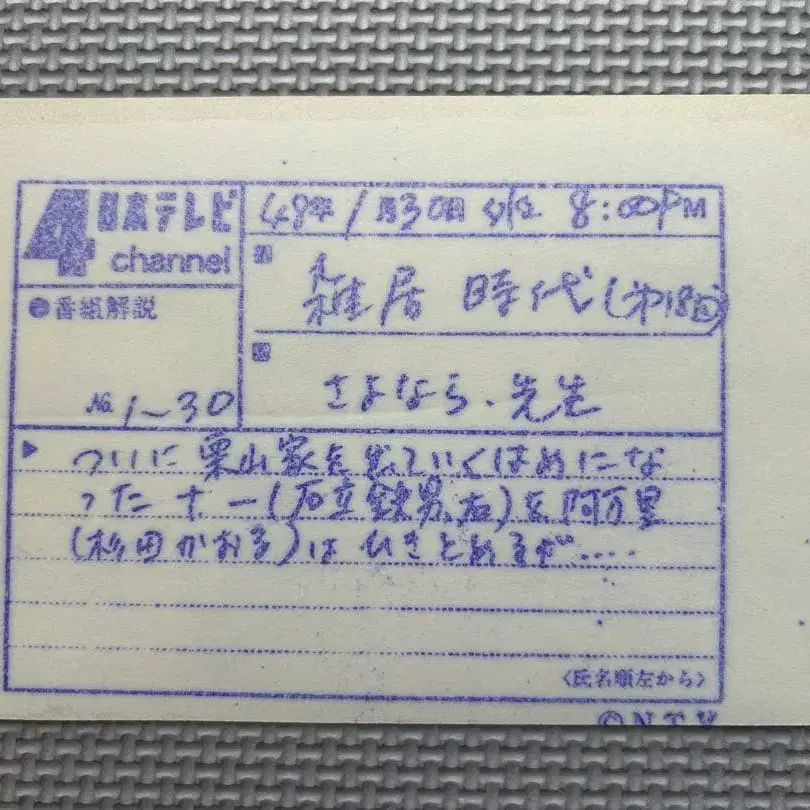 4 日本テレビ
channel
48年 1月30日 火 8:00PM
雑居時代(第18回)
番組解説
No. 1~30
さよなら、先生
ついに栗山家を出ていくはめにな
った十一(石立鉄男、右)を阿万里
(杉田かおる)はひきとめるが....
〈氏名順左から〉
©NTV